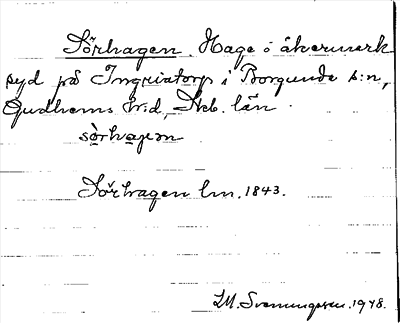 Sörhagen. Hage o åkermark
syd på Ingriatorp i Borgunda s:n,
Gudhems hd, Skb. län.
sørhaʒən
Sörhagen lm. 1843.
1948.